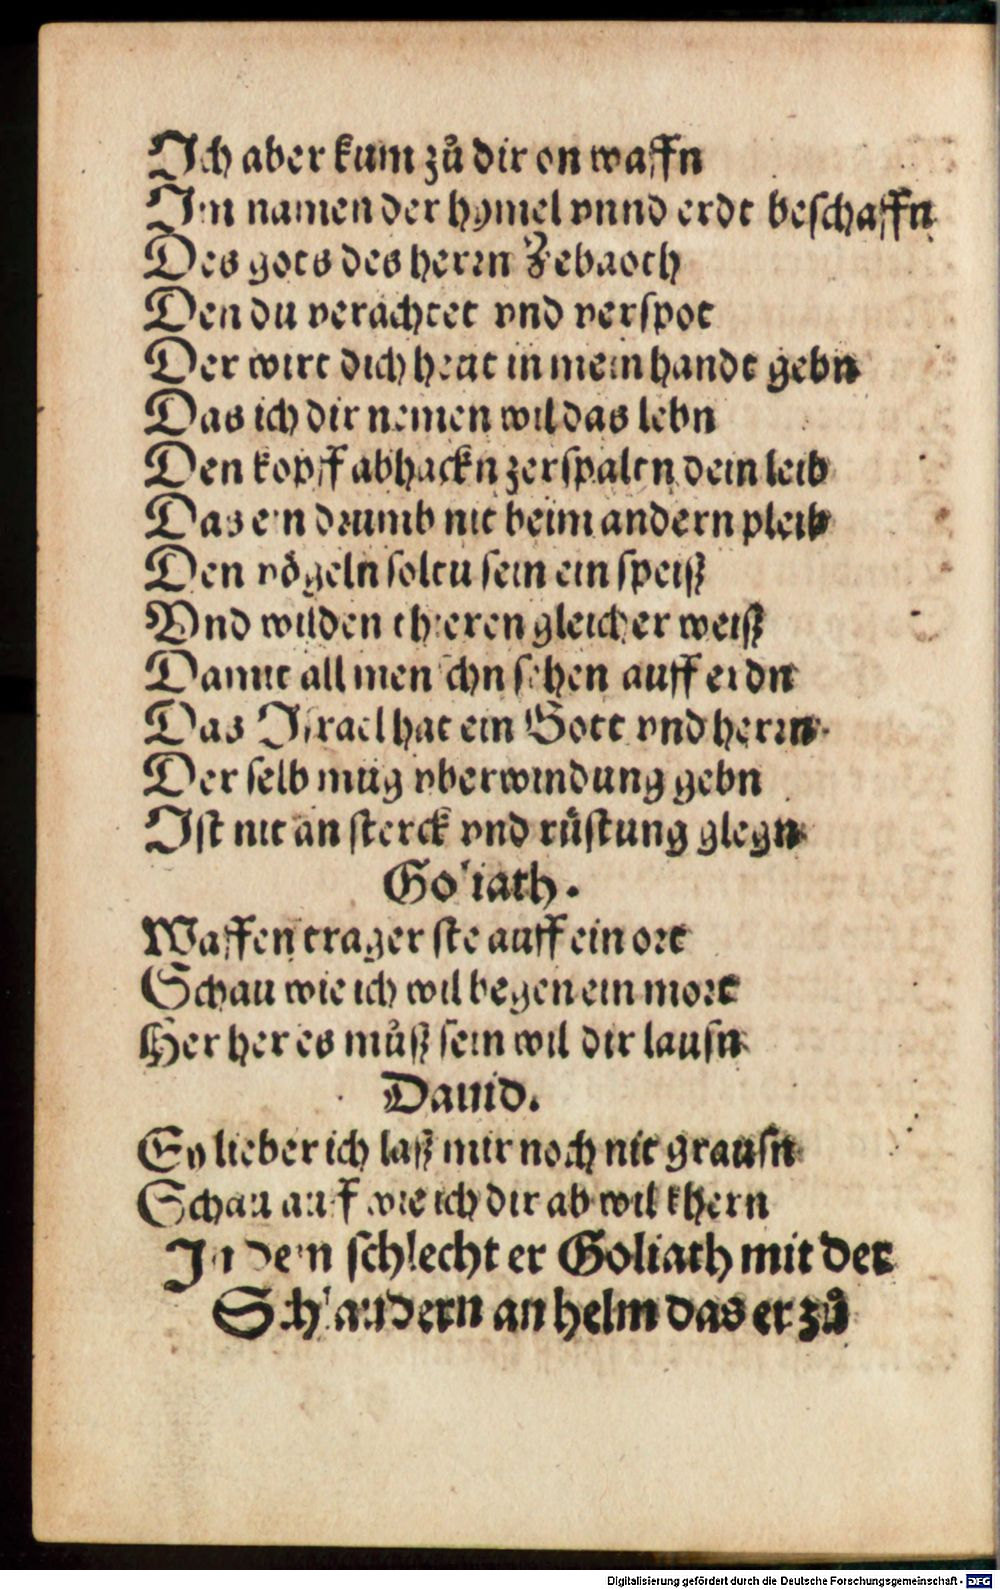 Ich aber kum zů dir on waffn
Im namen der hymel vnnd erdt beschaffn
Des gots des herrn Zebaoth
Den du verachtet vnd verspot
Der wirt dich heut in mein handt gebn
Das ich dir nemen wil das lebn
Den kopff abhackn zerspaltn dein leib
Das ein drumb nit beim andern pleib
Den vögeln soltu sein ein speiß
Vnd wilden thieren gleicher weiß
Damit all menschn sehen auff erdn
Das Israel hat ein Gott vnd herrn
Der selb mug vberwindung gebn
Ist nit an sterck vnd růstung glegn
Goliath.
Waffen trager ste auff ein ort
Schau wie ich wil begen ein mort
Her her es můß sein wil dir lausn
Dauid.
Ey lieber ich laß mir noch nit grausn
Schau auff wie ich dir ab wil khern
In dem schlecht er Goliath mit der
Schlaudern an helm das er zů
Digitalisierung gefördert durch die Deutsche Forschungsgemeinschaft - DFG